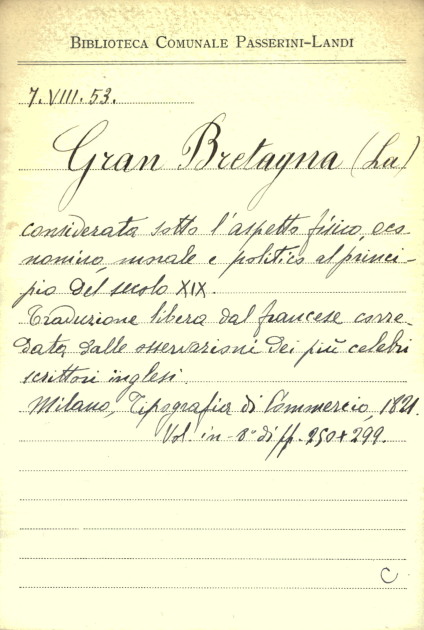 BIBLIOTECA COMUNALE PASSERINI-LANDI
7.VIII.53.
Gran Bretagna (La)
considerata sotto l'aspetto fisico, eco
nomico, morale e politico al princi-
pio del secolo XIX.
Traduzione libera dal francese corre-
data dalle osservazioni dei più celebri
scrittori inglesi.
Milano, Tipografia di Commercio, 1821.
Vol. in-8° di pp. 250+299.
C